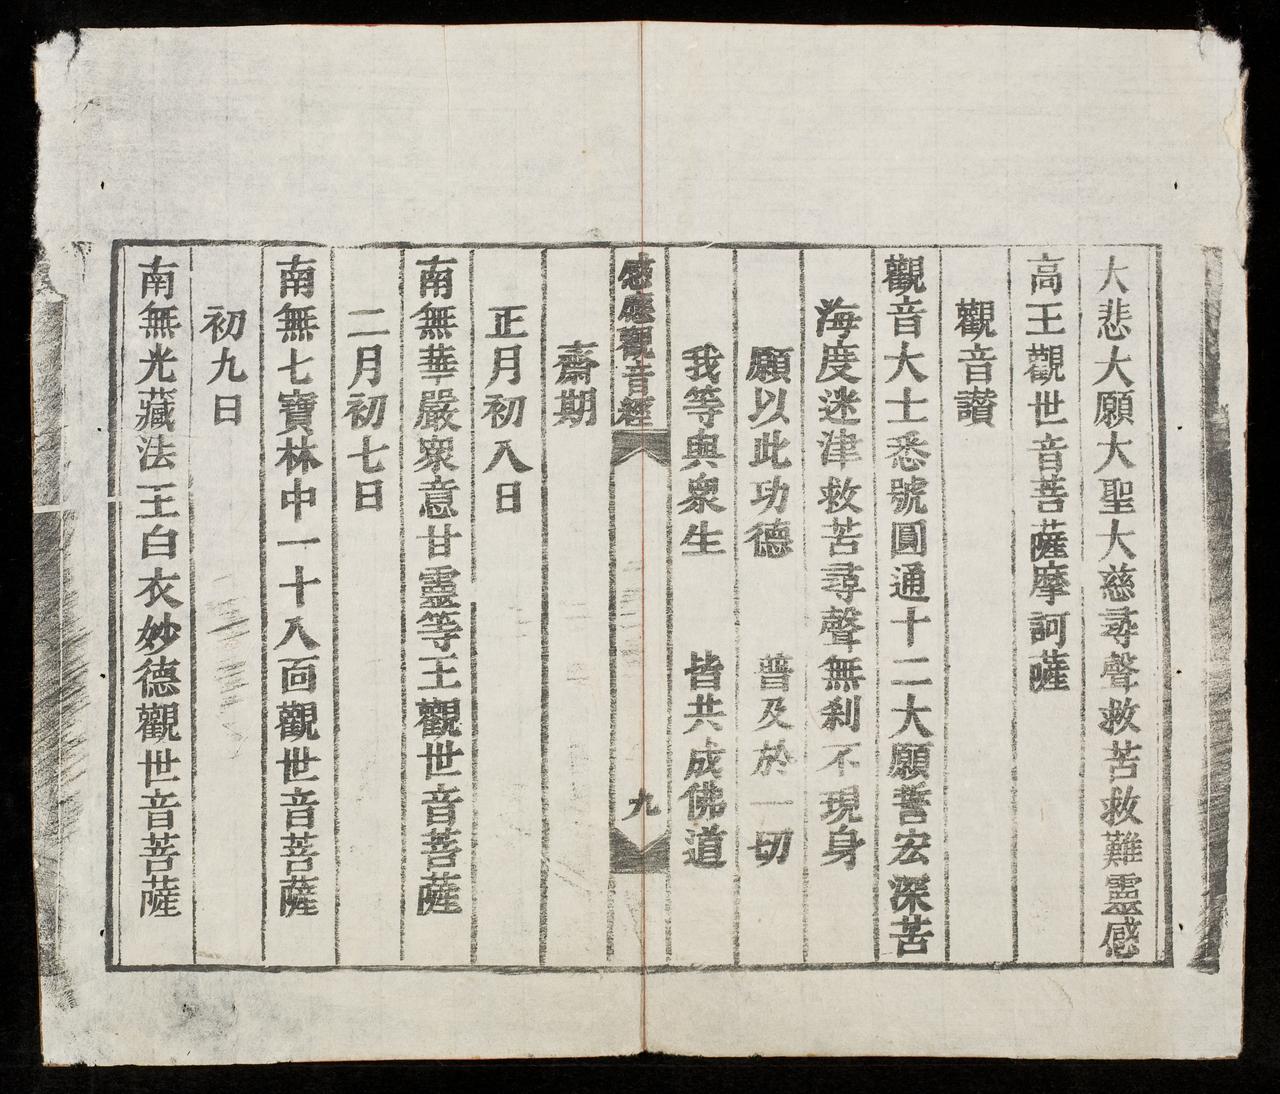 大悲大願大聖大慈尋聲救苦救難靈感
高王觀世音菩薩摩訶薩
觀音讃
觀音大士悉號圓通十二大願誓宏深苦
海度迷津救苦尋聲無刹不現身
願以此功德　普及於一切
我等與衆生　皆共成佛道
感應觀音經　九
齋期
正月初八日
南無華嚴衆意甘靈等王觀世音菩薩
二月初七日
南無七寶林中一十八面觀世音菩薩
初九日
南無光藏法王白衣妙德觀世音菩薩